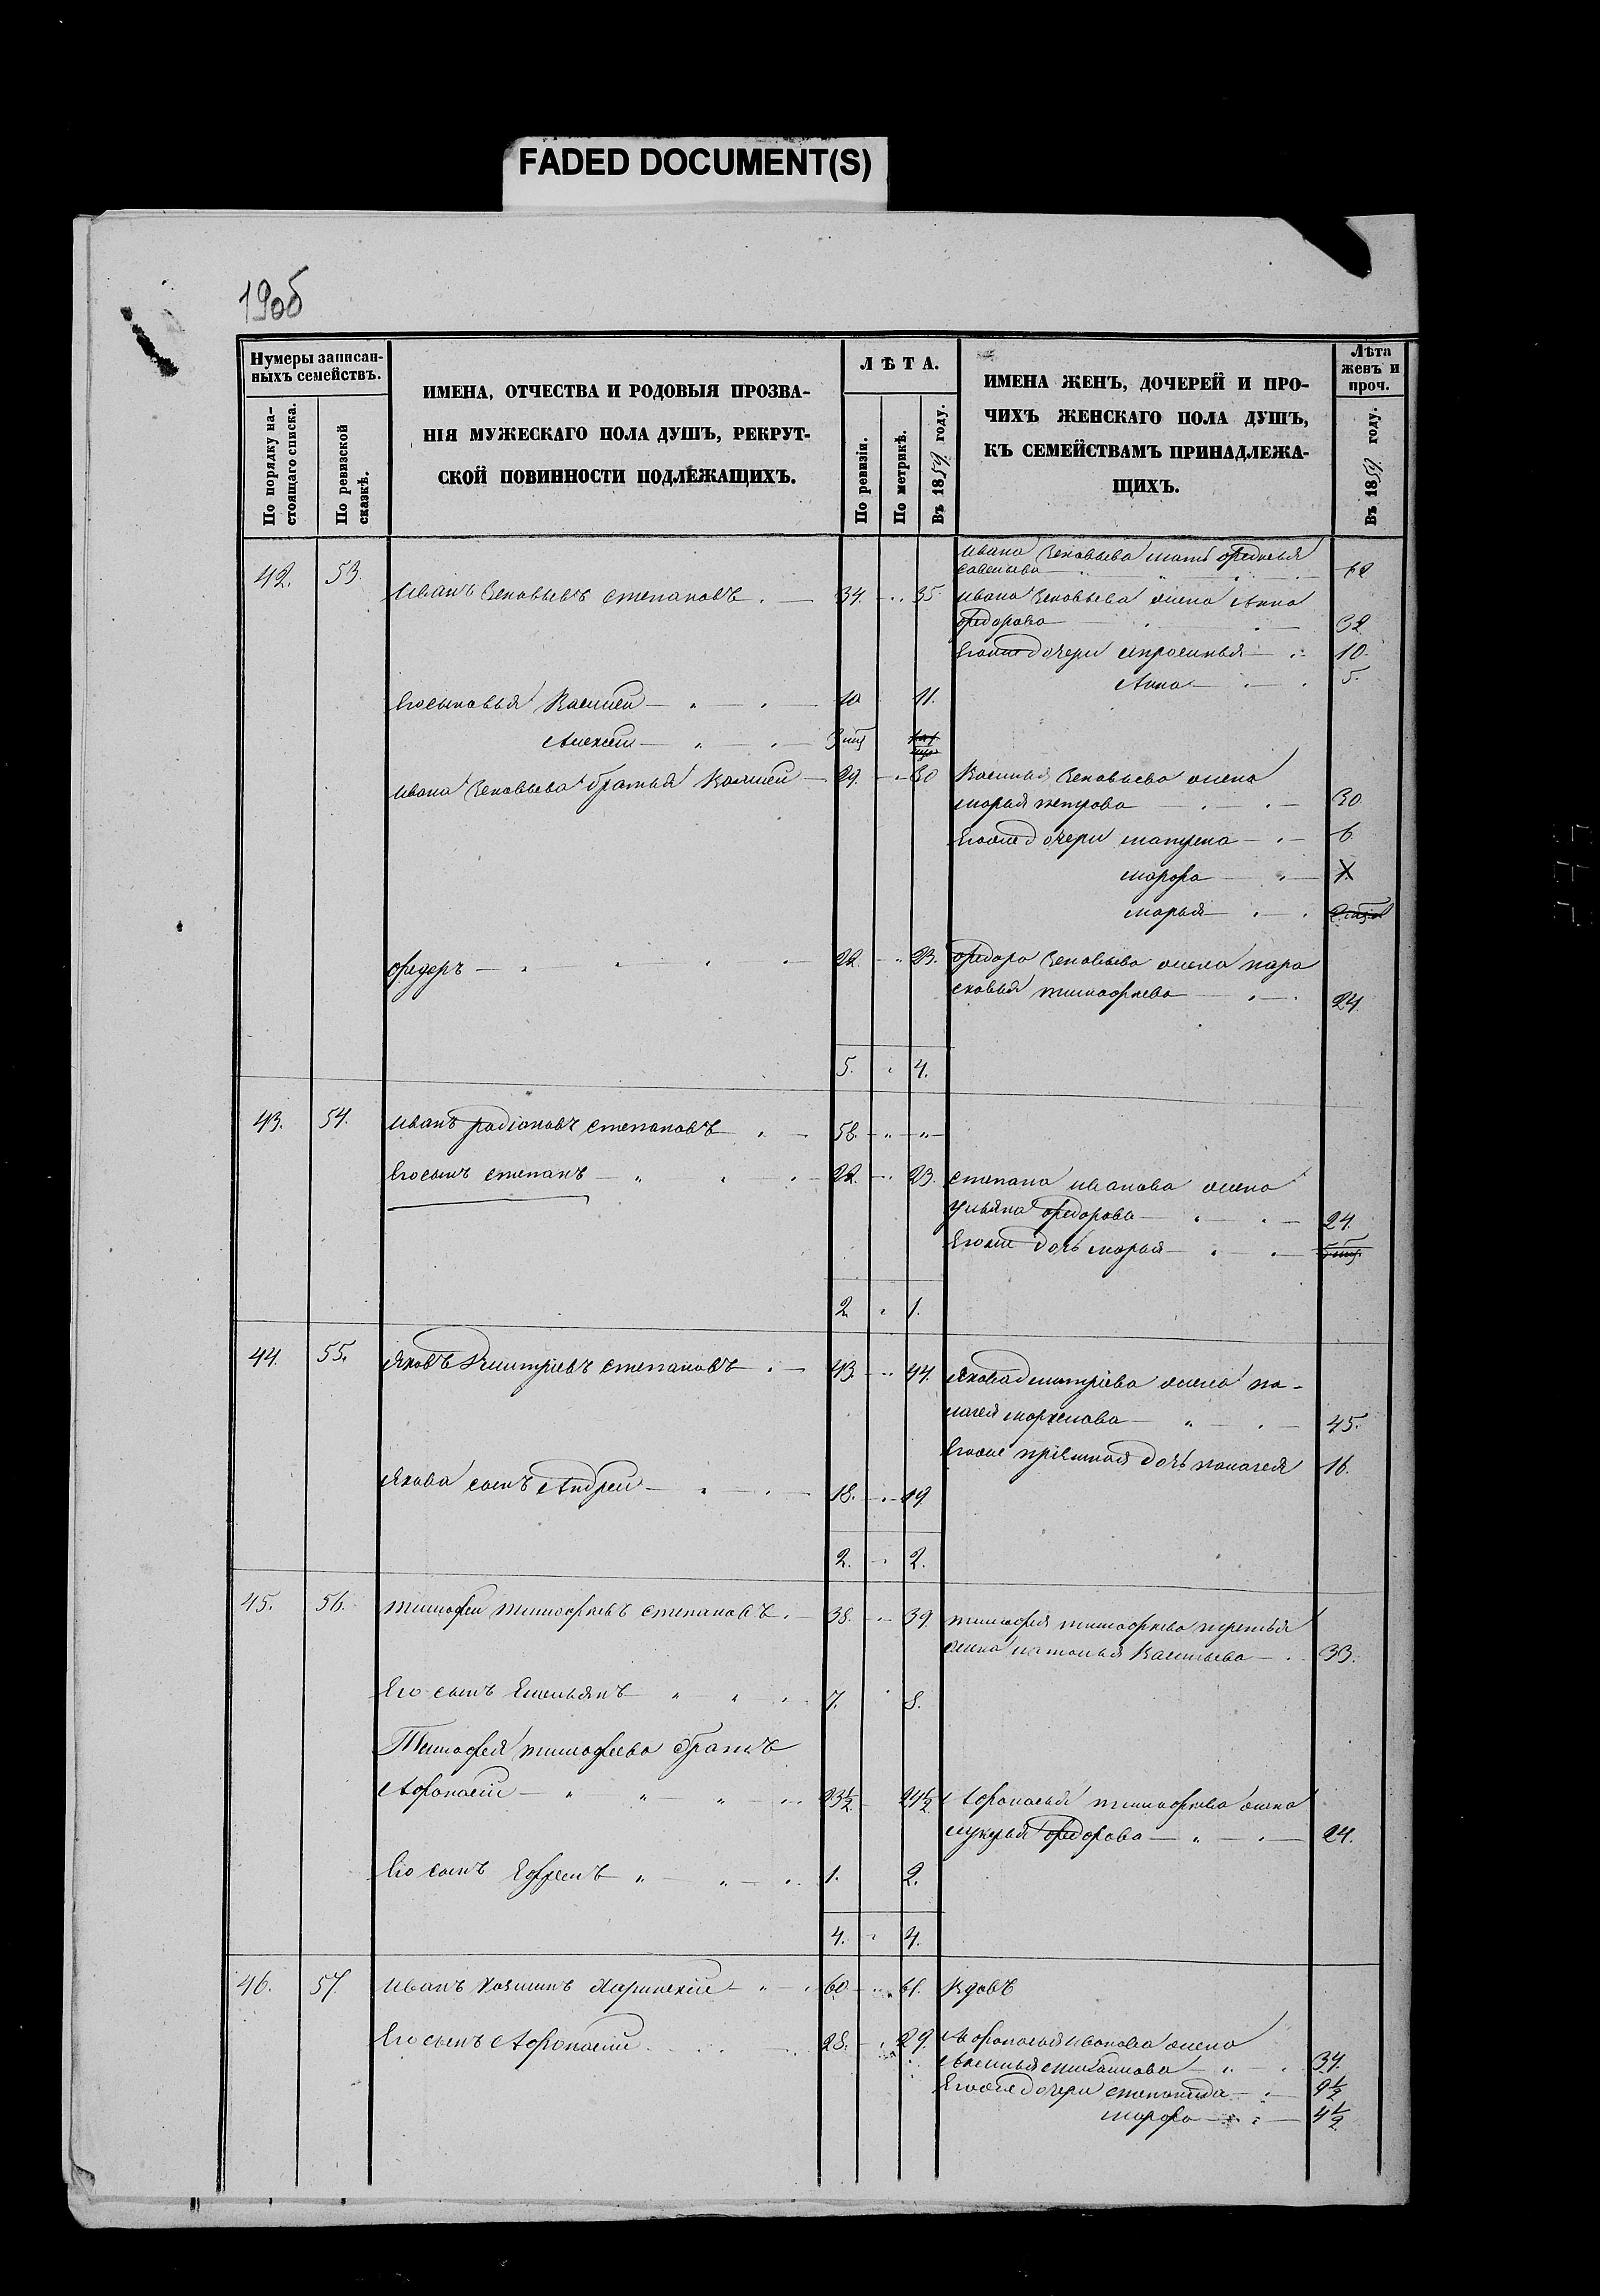 FADED DOCUMENT(S)
190б
Нумеры записан-
ныхъ семействъ.
По порядку на-
стоящаго списка.
По ревизской
сказкѣ.
ИМЕНА, ОТЧЕСТВА И РОДОВЫЯ ПРОЗВА-
НІЯ МУЖЕСКАГО ПОЛА ДУШЪ, РЕКРУТ-
СКОЙ ПОВИННОСТИ ПОДЛЕЖАЩИХЪ.
ЛѢТА.
По ревизіи.
По метрикѣ.
Въ 1859 году.
ИМЕНА ЖЕНЪ, ДОЧЕРЕЙ И ПРО-
ЧИХЪ ЖЕНСКАГО ПОЛА ДУШЪ,
КЪ СЕМЕЙСТВАМЪ ПРИНАДЛЕЖА-
ЩИХЪ.
Лѣта
женъ и
проч.
Въ 1859 году.
Ивана Зеновьева мать
савельева
42. 53. Иванъ Зеновьевъ степановъ 34. 35. Ивана Зеновьева жена Анна
федорова 32
Егоже дочери 10.
Анна 5.
Его сыновья 10 11.
Алексей 3
Ивана Зеновьева братья 29. 30 Зеновьева жена
марья петрова 30.
Егоже дочери 6
марфа
марья
федоръ 22. 23. федора Зеновьева жена пара
сковья тимофѣева 24.
5. 4.
43. 54. Иванъ радіоновъ степановъ 58.
Его сынъ степанъ 22. 23. степана иванова жена
ульяна федорова 24.
Егоже дочь марья
2. 1.
44. 55. Яковъ Дмитріевъ степановъ 43. 44. Якова дмитріева жена пе-
лагея 45.
Егоже пріемная дочь пелагея 16.
Якова сынъ Андрей 18. 19
2. 2.
45. 56. тимофей тимофѣевъ степановъ 38. 39. тимофея тимофѣева третья
жена наталья Васильева 33.
Его сынъ Емельянъ 7. 8.
Тимофея тимофеева братъ
Афонасій 23½ 24½ Афонасья тимофѣева жена
лукерья федорова 24.
Его сынъ Ефремъ 1. 2.
4. 4.
46. 57. Иванъ 60. 61. Вдовъ
Его сынъ Афонасій 28. 29. Афонасья Иванова жена
34.
Егоже дочери степанида 9½
марфа 4½